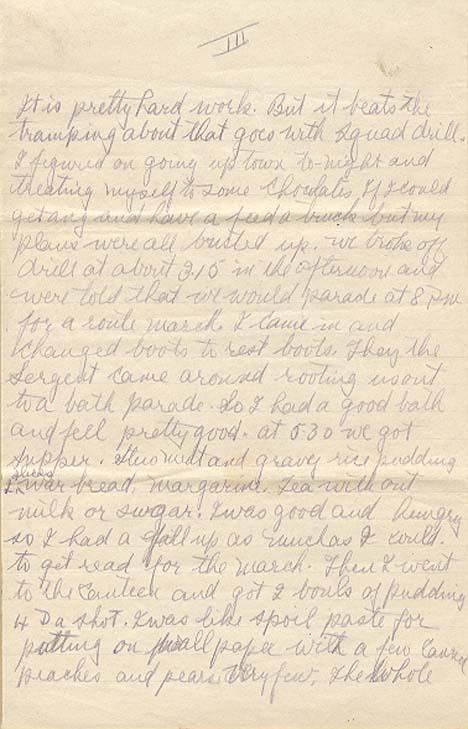 III
It is pretty hard work. But it beats the
tramping about that goes with squad drill.
I figured on going up town to-night and
treating myself to some Chocolates If I could
get any and have a feed a truck but my
plans were all busted up. we broke off
drill at about 3.15 in the afternoon and
were told that we would parade at 8 P.M
for a route march. I came in and
changed boots to rest boots. They the
Sergent came around rooting us out
to a bath parade. So I had a good bath
and fell pretty good. at 5.30 we got
supper. Stuo meat and gravey rice pudding
2 slices war bread, margarine. Tea with out
milk or sugar. I was good and hungry
so I had a fill up as Emuchas I could.
to get read for the march. Then I went
to the Canteen and got 2 bouls of pudding
4 D a shot. I was like spoil paste for
putting on wall paper with a few Canned
peaches and pears. Very few. The whole